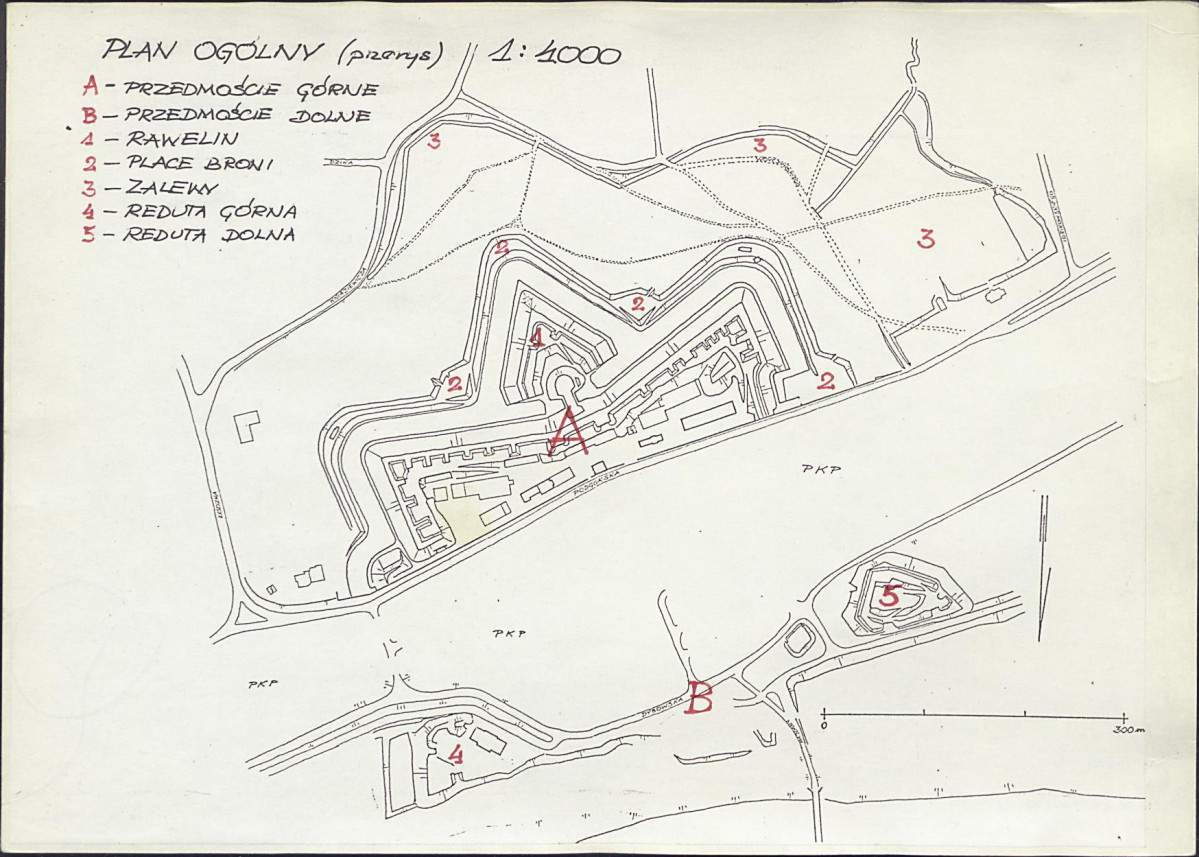 PLAN OGÓLNY (przerys) 1:4000
A - PRZEDMOŚCIE GÓRNE
B - PRZEDMOŚCIE DOLNE
1 - RAWELIN
2 - PLACE BRONI
3 - ZALEWY
4 - REDUTA GÓRNA
5 - REDUTA DOLNA
3
3
3
2
2
1
2
2
A
PODGÓRSKA
PKP
5
PKP
PKP
B
DYBOWSKA
4
0
300m